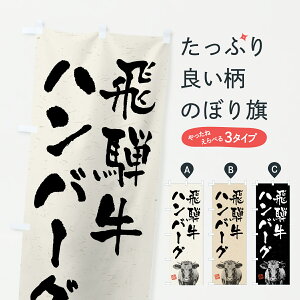 飛騨牛
ハンバーグ
たっぷり
良い柄
のぼり旗
やったね
えらべる3タイプ
A
B
C
飛騨牛
ハンバーグ
飛騨牛
ハンバーグ
飛騨牛
ハンバーグ